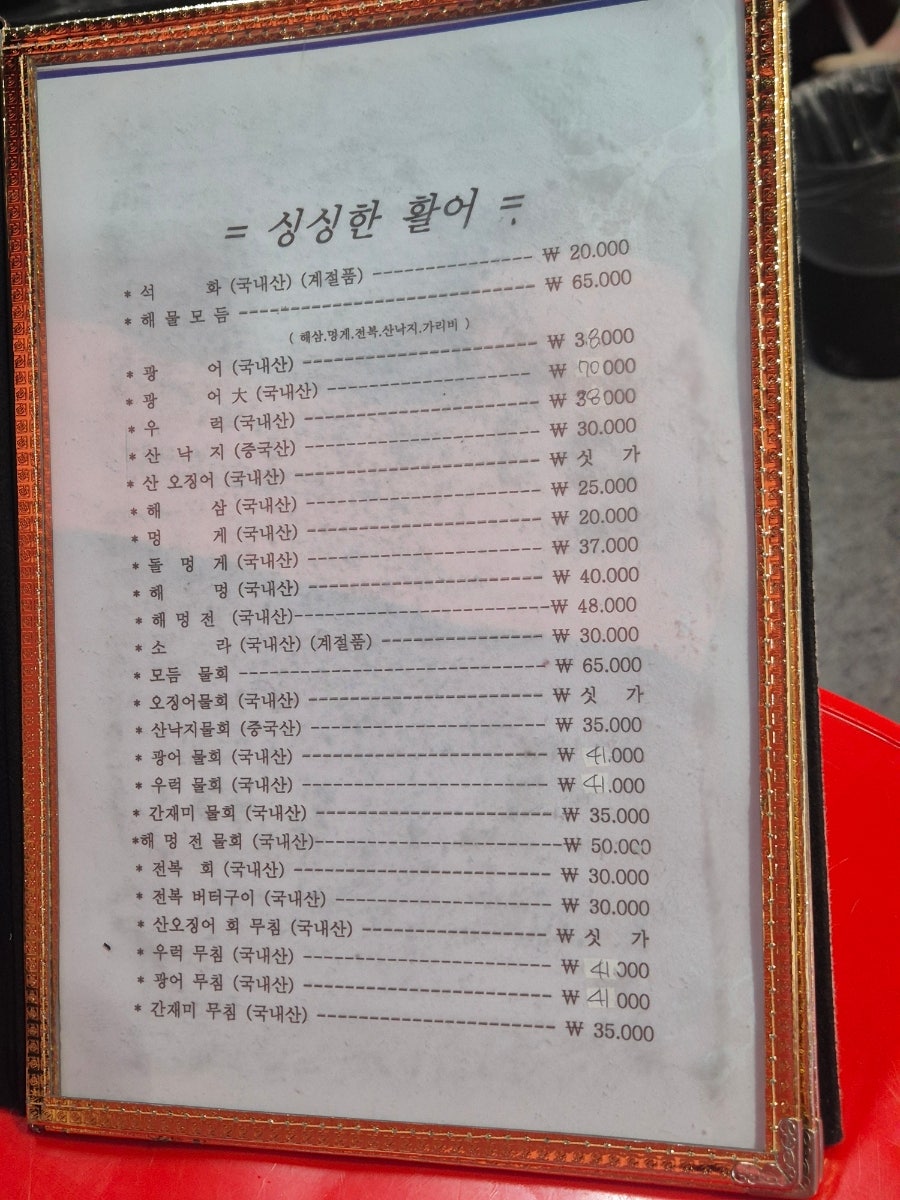 = 싱싱한 활어 =
* 석 화 (국내산) (계절품) ---------------- ₩ 20.000
* 해 물 모 듬 ------------------------------ ₩ 65.000
( 해삼.멍게.전복.산낙지.가리비 )
* 광 어 (국내산) ------------------------ ₩ 38000
* 광 어 大 (국내산) --------------------- ₩ 70000
* 우 럭 (국내산) ------------------------ ₩ 38000
* 산 낙 지 (중국산) ------------------------ ₩ 30.000
* 산 오징어 (국내산) ------------------------ ₩ 싯 가
* 해 삼 (국내산) ------------------------ ₩ 25.000
* 멍 게 (국내산) ------------------------ ₩ 20.000
* 돌 멍 게 (국내산) ------------------------ ₩ 37.000
* 해 멍 (국내산) ------------------------ ₩ 40.000
* 해 멍 전 (국내산)-------------------------- ₩ 48.000
* 소 라 (국내산) (계절품) ---------------- ₩ 30.000
* 모듬 물회 ------------------------------ ₩ 65.000
* 오징어물회 (국내산) ------------------------ ₩ 싯 가
* 산낙지물회 (중국산) ------------------------ ₩ 35.000
* 광어 물회 (국내산) ------------------------ ₩ 41.000
* 우럭 물회 (국내산) ------------------------ ₩ 41.000
* 간재미 물회 (국내산) ------------------------ ₩ 35.000
*해 멍 전 물회 (국내산)------------------------ ₩ 50.000
* 전복 회 (국내산) ------------------------ ₩ 30.000
* 전복 버터구이 (국내산) --------------------- ₩ 30.000
* 산오징어 회 무침 (국내산) ------------------ ₩ 싯 가
* 우럭 무침 (국내산) ------------------------ ₩ 41000
* 광어 무침 (국내산) ------------------------ ₩ 41000
* 간재미 무침 (국내산) ------------------------ ₩ 35.000